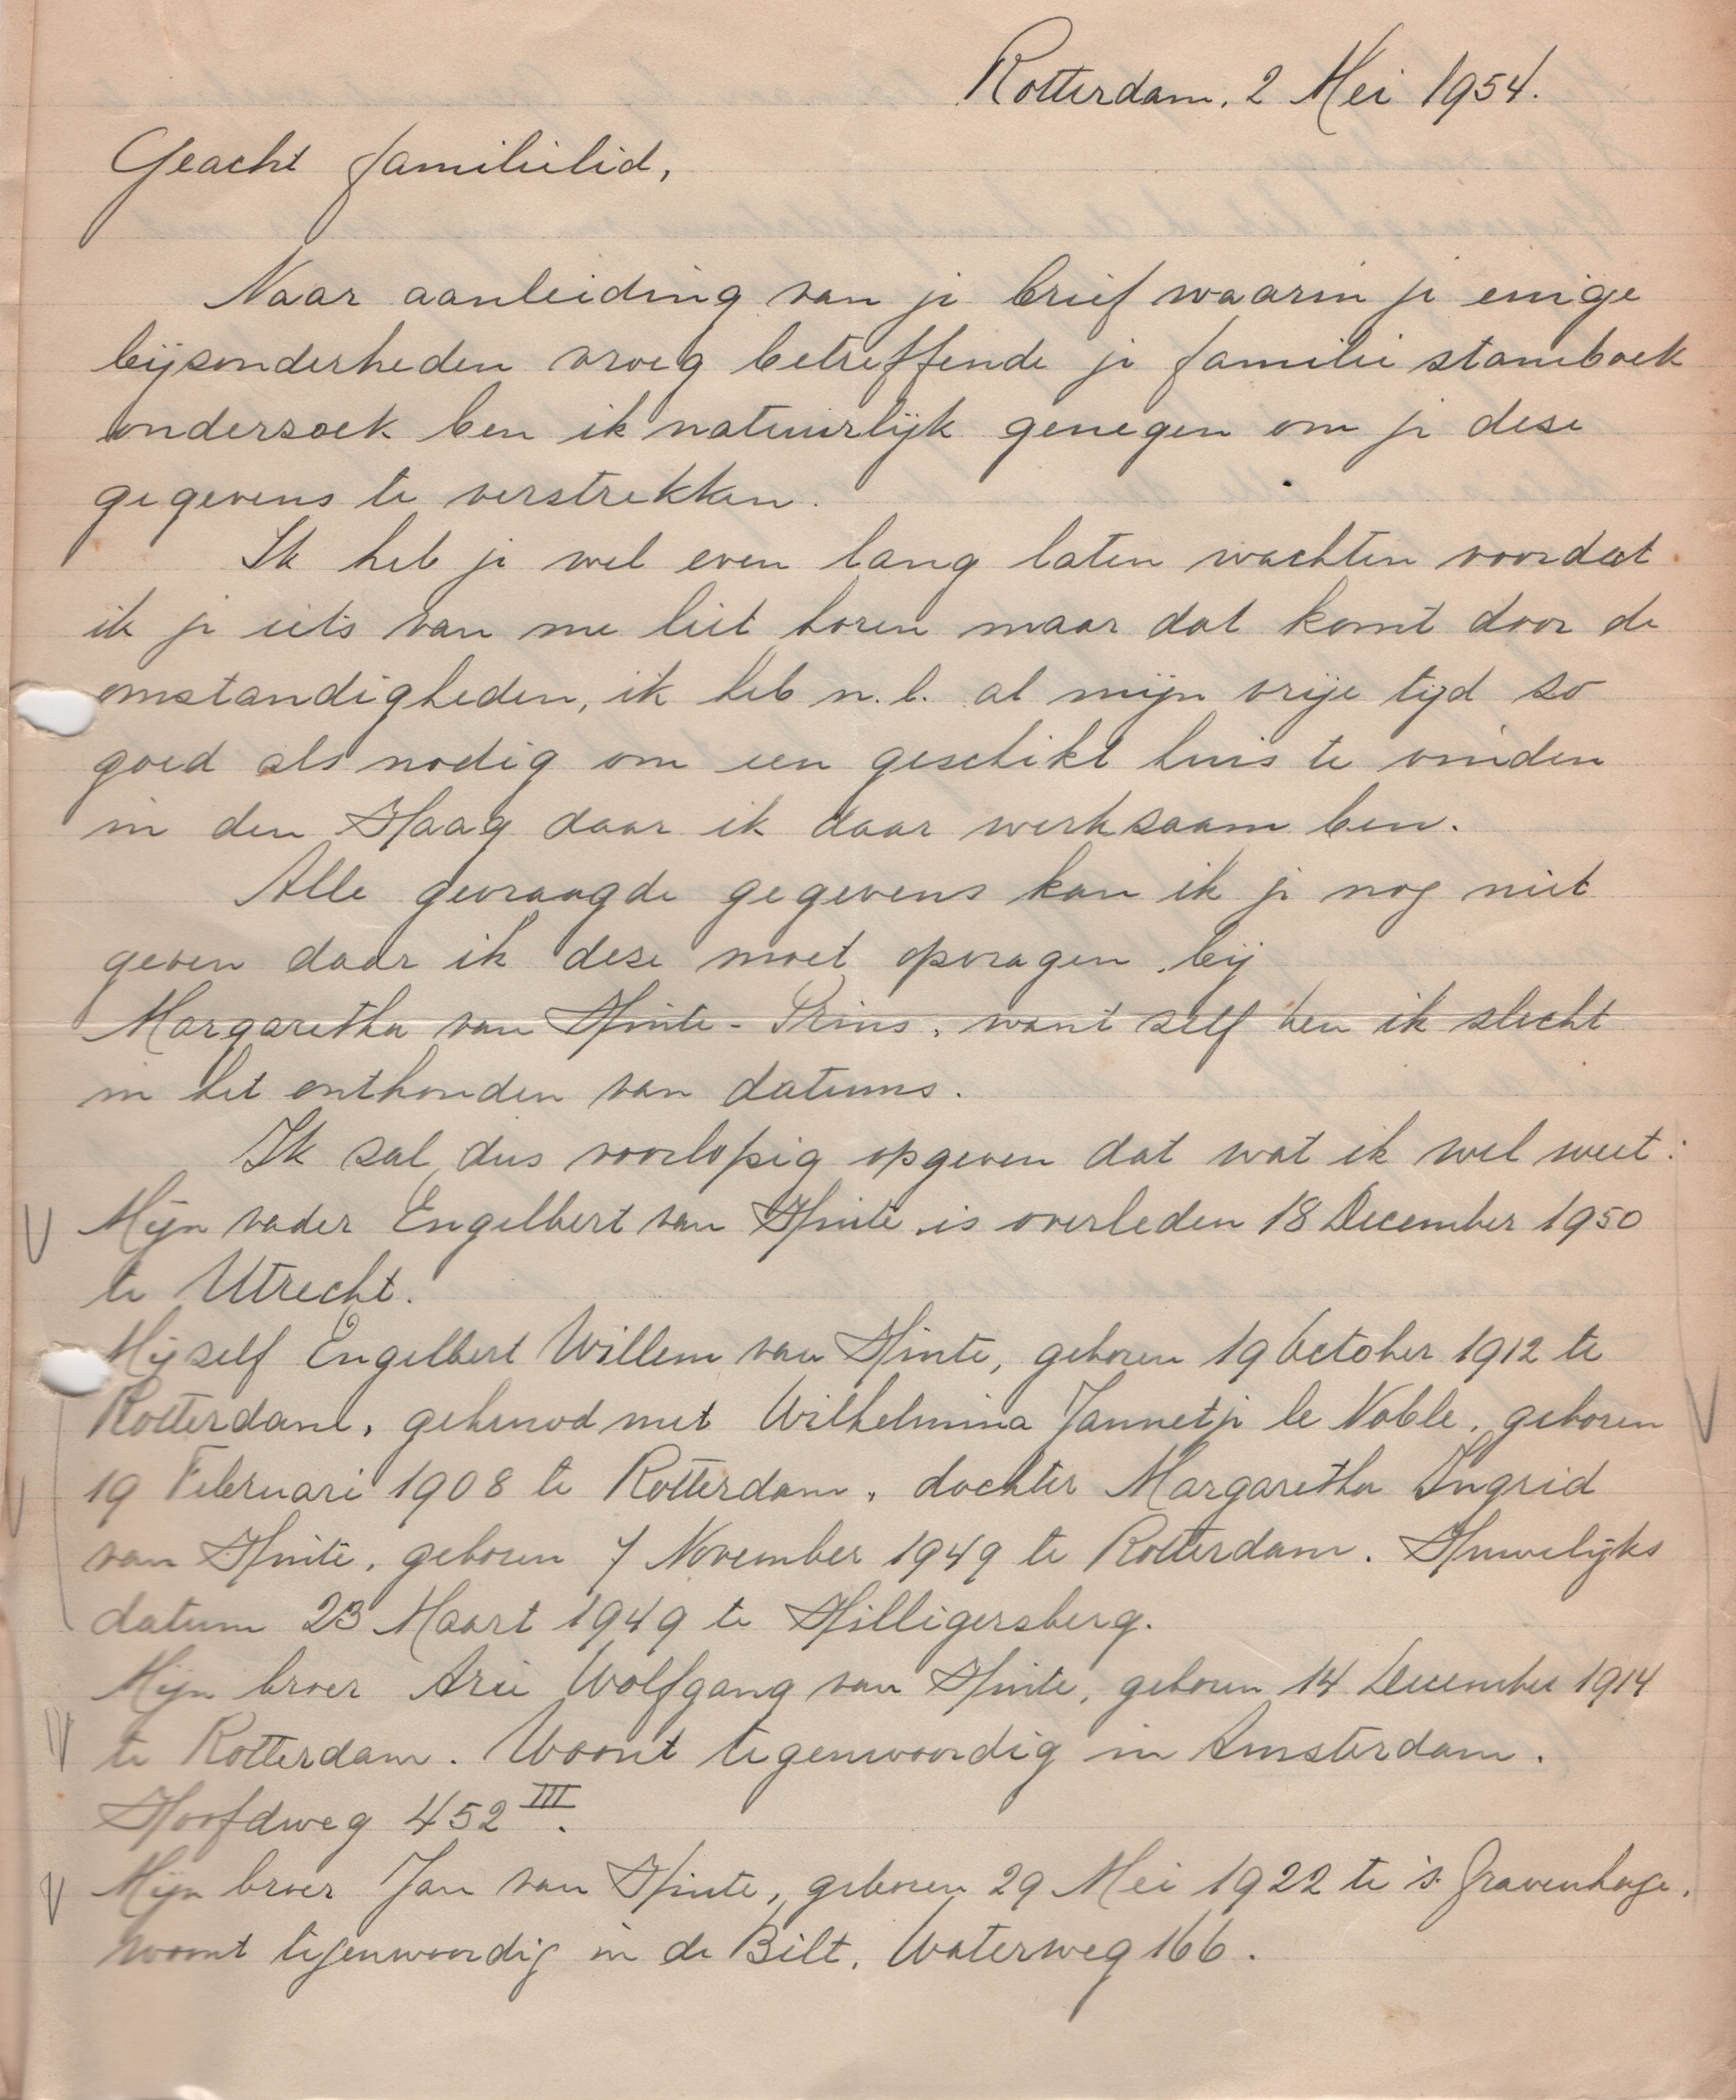 Rotterdam, 2 Mei 1954.
Geacht familielid,
Naar aanleiding van je brief waarin je enige
bijzonderheden vroeg betreffende je familie stamboek
onderzoek ben ik natuurlijk genegen om je deze
gegevens te verstrekken.
Ik heb je wel even lang laten wachten voordat
ik je iets van me liet horen maar dat komt door de
omstandigheden, ik heb n.l. al mijn vrije tijd zo
goed als nodig om een geschikt huis te vinden
in den Haag daar ik daar werkzaam ben.
Alle gevraagde gegevens kan ik je nog niet
geven daar ik deze moet opvragen bij
Margaretha van Hinte - Prins, want zelf ben ik slecht
in het onthouden van datums.
Ik zal dus voorlopig opgeven dat wat ik wel weet:
Mijn vader Engelbert van Hinte is overleden 18 December 1950
te Utrecht.
Mijzelf Engelbert Willem van Hinte, geboren 19 October 1912 te
Rotterdam, gehuwd met Wilhelmina Jannetje le Noble, geboren
19 Februari 1908 te Rotterdam, dochter Margaretha Ingrid
van Hinte, geboren 7 November 1949 te Rotterdam. Huwelijks
datum 23 Maart 1949 te Hilligersberg.
Mijn broer Arie Wolfgang van Hinte, geboren 14 December 1914
te Rotterdam. Woont tegenwoordig in Amsterdam.
Hoofdweg 452 III.
Mijn broer Jan van Hinte, geboren 29 Mei 1922 te 's Gravenhage,
woont tegenwoordig in de Bilt, Waterweg 166.